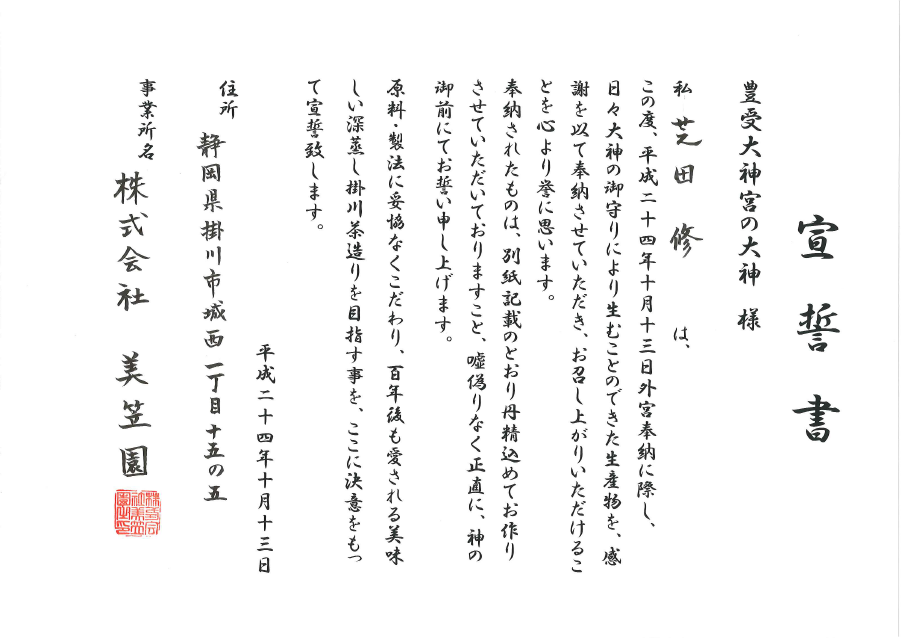 宣誓書
豊受大神宮の大神 様
私 芝田 修 は、
この度、平成二十四年十月十三日外宮奉納に際し、
日々大神の御守りにより生むことのできた生産物を、感
謝を以て奉納させていただき、お召し上がりいただけるこ
とを心より誉に思います。
奉納されたものは、別紙記載のとおり丹精込めてお作り
させていただいておりますこと、嘘偽りなく正直に、神の
御前にてお誓い申し上げます。
原料・製法に妥協なくこだわり、百年後も愛される美味
しい深蒸し掛川茶造りを目指す事を、ここに決意をもっ
て宣誓致します。
平成二十四年十月十三日
住所 静岡県掛川市城西一丁目十五の五
事業所名 株式会社 美笠園